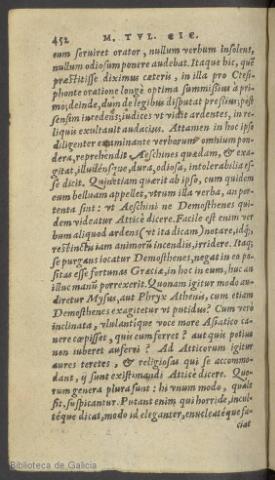 452 M. TVL. CIC.
eum seruiret orator, nullum verbum insolens,
nullum odiosum ponere audebat. Itaque hic, quē
præstitisse diximus cæteris, in illa pro Ctesi-
phonte oratione longè optima summißius à pri-
mo; deinde, dum de legibus disputat, preßius; pòst
sensim incedens; iudices vt vidit ardentes, in re-
liquis exultauit audacius. Attamen in hoc ipso
diligenter examinante verborum omnium pon-
dera, reprehendit Aeschines quædam, & exa-
gitat, illudénsque, dura, odiosa, intolerabilia es-
se dicit. Quinetiam quærit ab ipso, cum quidem
eum belluam appellet, vtrum illa verba, an por-
tenta sint: vt Aeschini ne Demosthenes qui-
dem videatur Atticè dicere. Facile est enim ver
bum aliquod ardens (vt ita dicam) notare, idq́;
restinctis iam animorū incendiis, irridere. Itaq;
se purgans iocatur Demosthenes, negat in eo po-
sitas esse fortunas Græciæ, in hoc in eum, huc an
illuc manū porrexerit. Quonam igitur modo au-
diretur Mysus, aut Phryx Athenis, cum etiam
Demosthenes exagitetur vt putidus? Cum verò
inclinata, vlulantíque voce more Asiatico ca-
nere cœpisset, quis eum ferret? aut quis potius
non iuberet auferri? Ad Atticorum igitur
aures teretes, & religiosas qui se accommo-
dant, ij sunt existimandi Atticè dicere. Quo-
rum genera plura sunt: hi vnum modo, quale
sit, suspicantur. Putant enim qui horridè, incul-
téque dicat, modo id eleganter, enucleatéque fa-
ciat
Biblioteca de Galicia